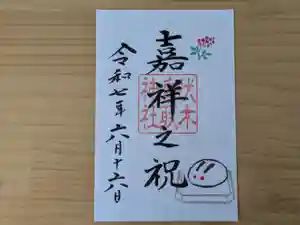 嘉祥之祝
令和七年六月十六日